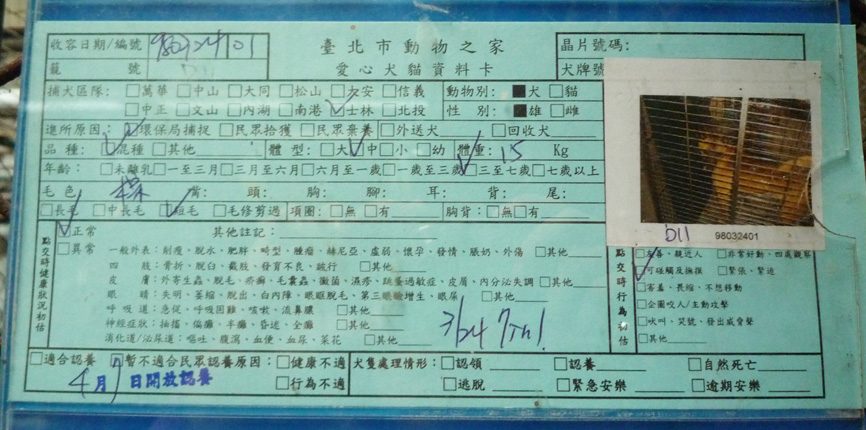 收容日期/編號 980324 01 臺北市動物之家 晶片號碼:
籠 號 D11 愛心犬貓資料卡 犬牌號
捕犬區隊: □萬華 □中山 □大同 □松山 □大安 □信義 動物別: ■犬 □貓
□中正 □文山 □內湖 □南港 □士林 □北投 性 別: ■雄 □雌
進所原因: □環保局捕捉 □民眾拾獲 □民眾棄養 □外送犬 □回收犬
品 種: □混種 □其他 體 型: □大 □中 □小 □幼 體重: 15 Kg
年齡: □未離乳 □一至三月 □三月至六月 □六月至一歲 □一歲至三歲 □三至七歲 □七歲以上
毛 色 嘴: 頭: 胸: 腳: 耳: 背: 尾:
□長毛 □中長毛 □短毛 □毛修剪過 項圈: □無 □有 胸背: □無 □有
D11 98032401
點交時健康狀況初估
□正常 其他註記:
□異常 一般外表: 削瘦、脫水、肥胖、畸型、腫瘤、赫尼亞、虛弱、懷孕、發情、脹奶、外傷 □其他
四 肢: 骨折、脫臼、截肢、發育不良、跛行 □其他
皮 膚: 外寄生蟲、脫毛、疥癬、毛囊蟲、黴菌、濕疹、跳蚤過敏症、皮屑、內分泌失調 □其他
眼 睛: 失明、萎縮、脫出、白內障、眼眶脫毛、第三眼瞼增生、眼屎 □其他
呼 吸 道: 急促、呼吸困難、咳嗽、流鼻膿 □其他
神經症狀: 抽搐、偏癱、半癱、昏迷、全癱 □其他
消化道/泌尿道: 嘔吐、腹瀉、血便、血尿、菜花 □其他
3/24
點交時行為初估
□友善、親近人 □非常好動、四處觀察
□可碰觸及撫摸 □緊張、緊迫
□害羞、畏縮、不想移動
□企圖咬人/主動攻擊
□吠叫、哭號、發出威脅聲
□其他
□適合認養 □暫不適合民眾認養原因: □健康不適 犬隻處理情形: □認領 □認養 □自然死亡
4月1日開放認養 □行為不適 □逃脫 □緊急安樂 □逾期安樂